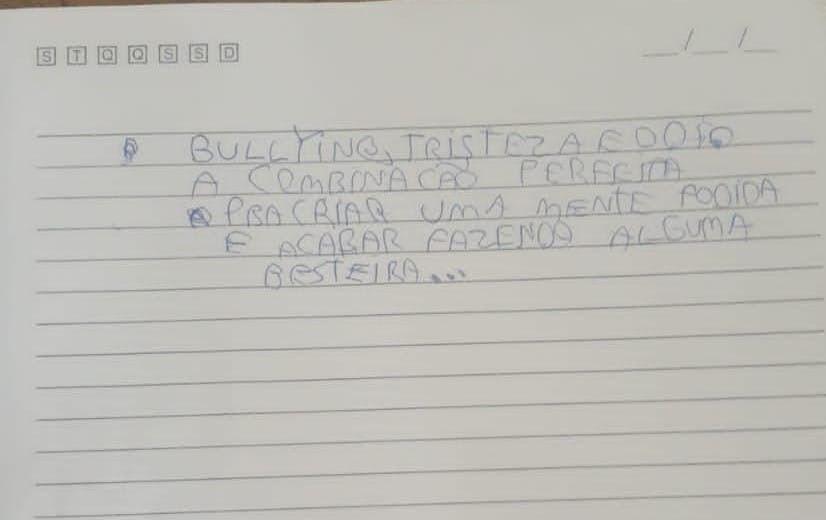 S T Q Q S S D
__/__/__
BULLYING, TRISTEZA E ODIO
A COMBINACAO PERFEITA
PRA CRIAR UMA MENTE FODIDA
E ACABAR FAZENDO ALGUMA
BESTEIRA...